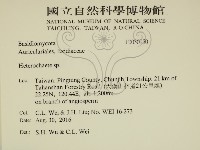 國立自然科學博物館
NATIONAL MUSEUM OF NATURAL SCIENCE
TAICHUNG, TAIWAN, R.O.CHINA
Basidiomycota
Auriculariales,
Heterochaete sp.
Loc. Taiwan, Pingtung County, Chunjih Township, 21 km of
Tahanshan Forestry Road
22.25N, 120.44E, alt.
on branch of angiosperm
Coll. C.L. Wei & No. WEI 16-273
Date: Aug. 10, 2016
Det. S.H. Wu & C.L. Wei